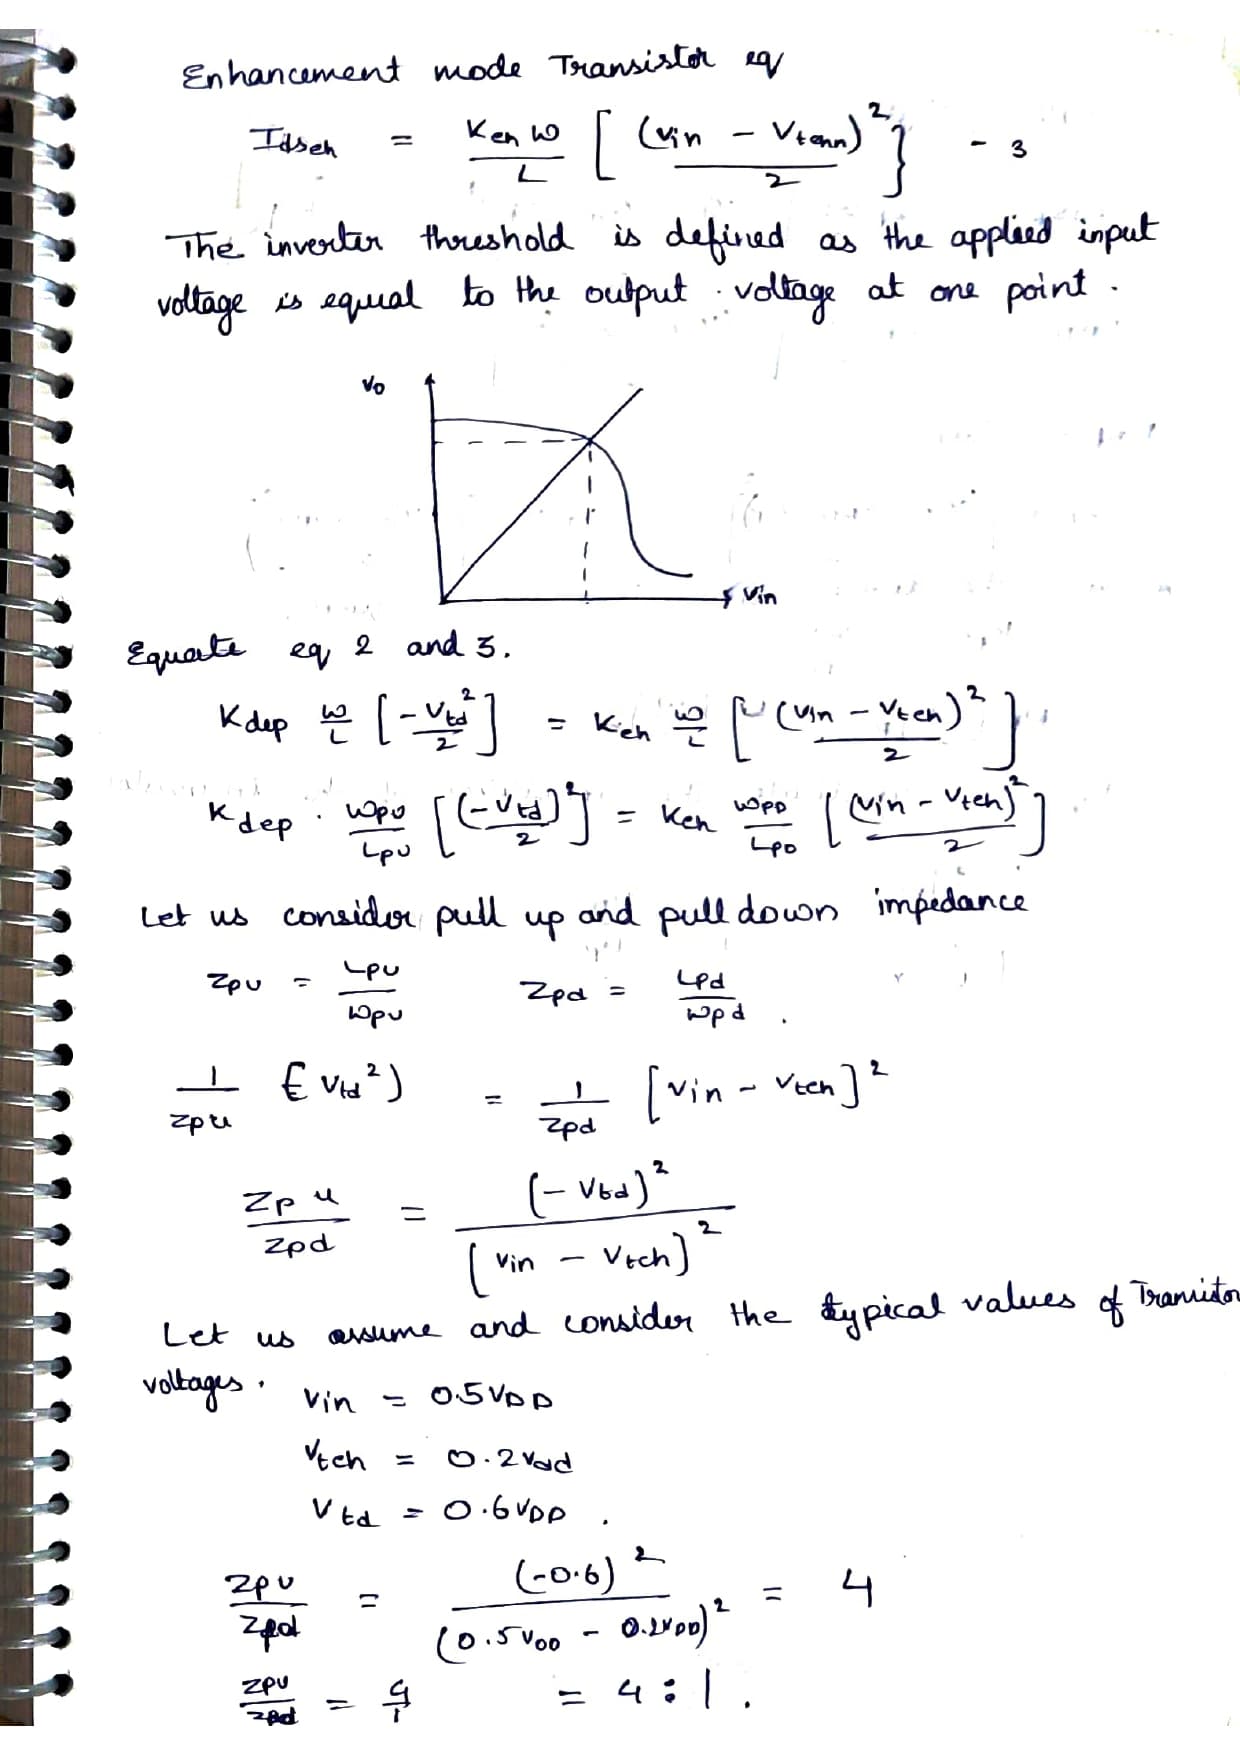 Enhancement mode Transistor eq
Idseh = Keh W / L [ (Vin - Vtenn)² / 2 ] - 3
The inverter threshold is defined as the applied input
voltage is equal to the output voltage at one point.
Vo
Vin
Equate eq 2 and 3.
Kdep W/L [ -Vtd² / 2 ] = Keh W/L [ (Vin - Vteh)² / 2 ]
Kdep . Wpu/Lpu [ (-Vtd)² / 2 ] = Keh WPD/LPD [ (Vin - Vteh)² / 2 ]
Let us consider pull up and pull down impedance
Zpu = Lpu/Wpu Zpd = Lpd/Wpd .
1/Zpu (-Vtd²) = 1/Zpd [Vin - Vteh]²
Zpu/Zpd = (-Vtd)² / [Vin - Vteh]²
Let us assume and consider the typical values of Transistor
voltages. Vin = 0.5VDD
Vteh = 0.2Vdd
Vtd = 0.6VDD .
Zpu/Zpd = (-0.6)² / (0.5VDD - 0.2VDD)² = 4
Zpu/Zpd = 4/1 = 4:1 .